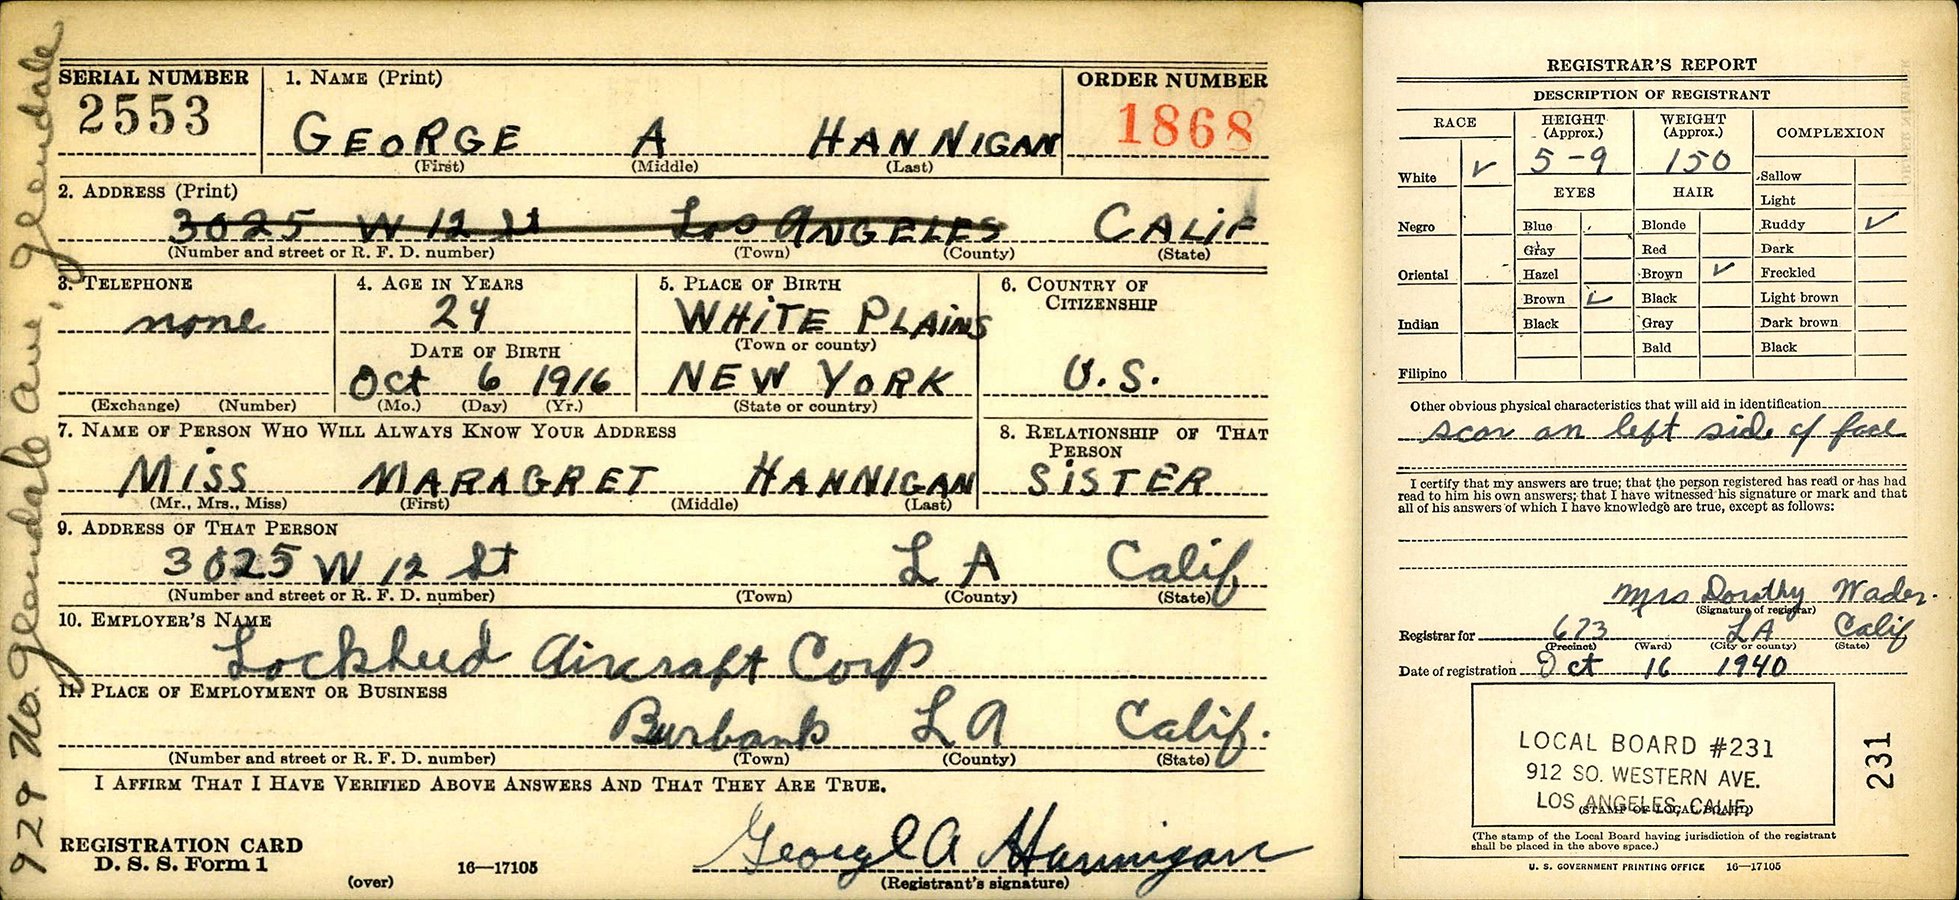 SERIAL NUMBER
2553
1. NAME (Print)
GEORGE A HANNIGAN
(First) (Middle) (Last)
ORDER NUMBER
1868
2. ADDRESS (Print)
3025 W 12 St Los ANGELES CALIF
(Number and street or R. F. D. number) (Town) (County) (State)
3. TELEPHONE
none
(Exchange) (Number)
4. AGE IN YEARS
24
DATE OF BIRTH
Oct 6 1916
(Mo.) (Day) (Yr.)
5. PLACE OF BIRTH
WHITE PLAINS
(Town or county)
NEW YORK
(State or country)
6. COUNTRY OF
CITIZENSHIP
U.S.
7. NAME OF PERSON WHO WILL ALWAYS KNOW YOUR ADDRESS
MISS MARAGRET HANNIGAN
(Mr., Mrs., Miss) (First) (Middle) (Last)
8. RELATIONSHIP OF THAT
PERSON
SISTER
9. ADDRESS OF THAT PERSON
3025 W 12 St L A Calif
(Number and street or R. F. D. number) (Town) (County) (State)
10. EMPLOYER'S NAME
Lockheed Aircraft Corp
11. PLACE OF EMPLOYMENT OR BUSINESS
Burbank L A Calif.
(Number and street or R. F. D. number) (Town) (County) (State)
I AFFIRM THAT I HAVE VERIFIED ABOVE ANSWERS AND THAT THEY ARE TRUE.
REGISTRATION CARD
D. S. S. Form 1
(over)
16—17105
George A Hannigan
(Registrant's signature)
929 No. Glendale ave, Glendale
REGISTRAR'S REPORT
DESCRIPTION OF REGISTRANT
RACE
White ✓
Negro
Oriental
Indian
Filipino
HEIGHT
(Approx.)
5-9
WEIGHT
(Approx.)
150
EYES
Blue
Gray
Hazel
Brown ✓
Black
HAIR
Blonde
Red
Brown ✓
Black
Gray
Bald
COMPLEXION
Sallow
Light
Ruddy ✓
Dark
Freckled
Light brown
Dark brown
Black
Other obvious physical characteristics that will aid in identification
scar on left side of face
I certify that my answers are true; that the person registered has read or has had
read to him his own answers; that I have witnessed his signature or mark and that
all of his answers of which I have knowledge are true, except as follows:
Mrs Dorothy Wader.
(Signature of registrar)
Registrar for 673 LA Calif
(Precinct) (Ward) (City or county) (State)
Date of registration Oct 16 1940
LOCAL BOARD #231
912 SO. WESTERN AVE.
LOS ANGELES, CALIF.
(STAMP OF LOCAL BOARD)
231
(The stamp of the Local Board having jurisdiction of the registrant
shall be placed in the above space.)
U. S. GOVERNMENT PRINTING OFFICE 16—17105